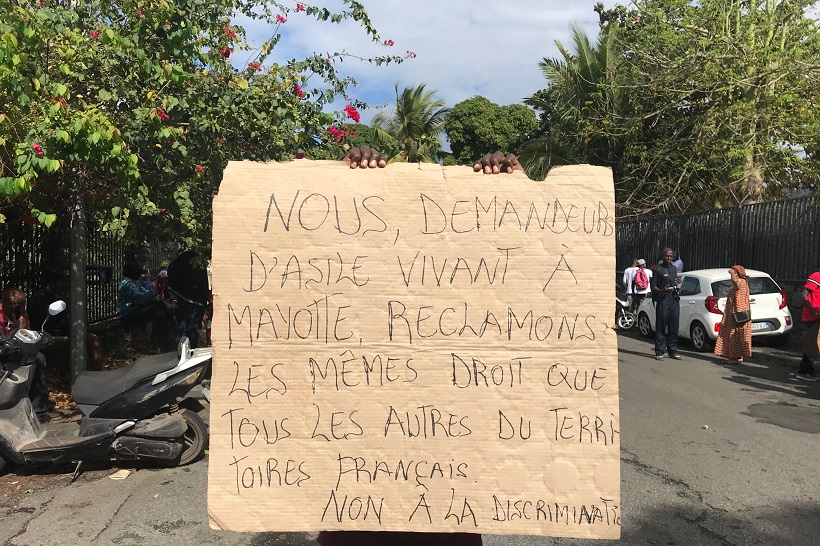 NOUS, DEMANDEURS
D'ASILE VIVANT À
MAYOTTE, RECLAMONS
LES MÊMES DROIT QUE
TOUS LES AUTRES DU TERRI
TOIRES FRANÇAIS.
NON À LA DISCRIMINATI